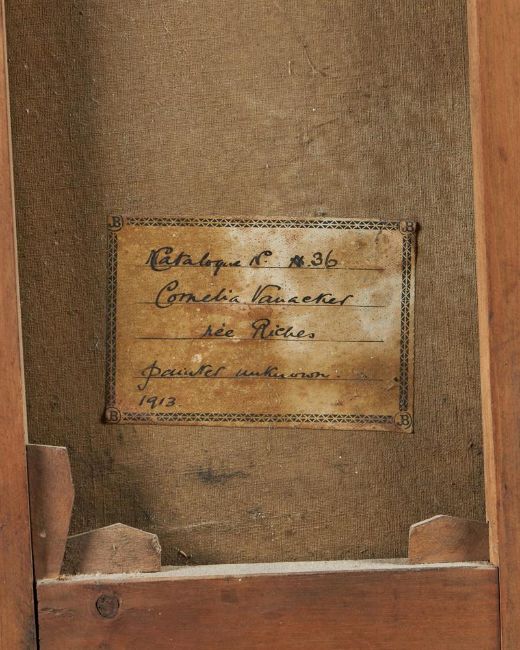 Katalogue No. 36
Cornelia Vanacker
née Riches
painter unknown
1913